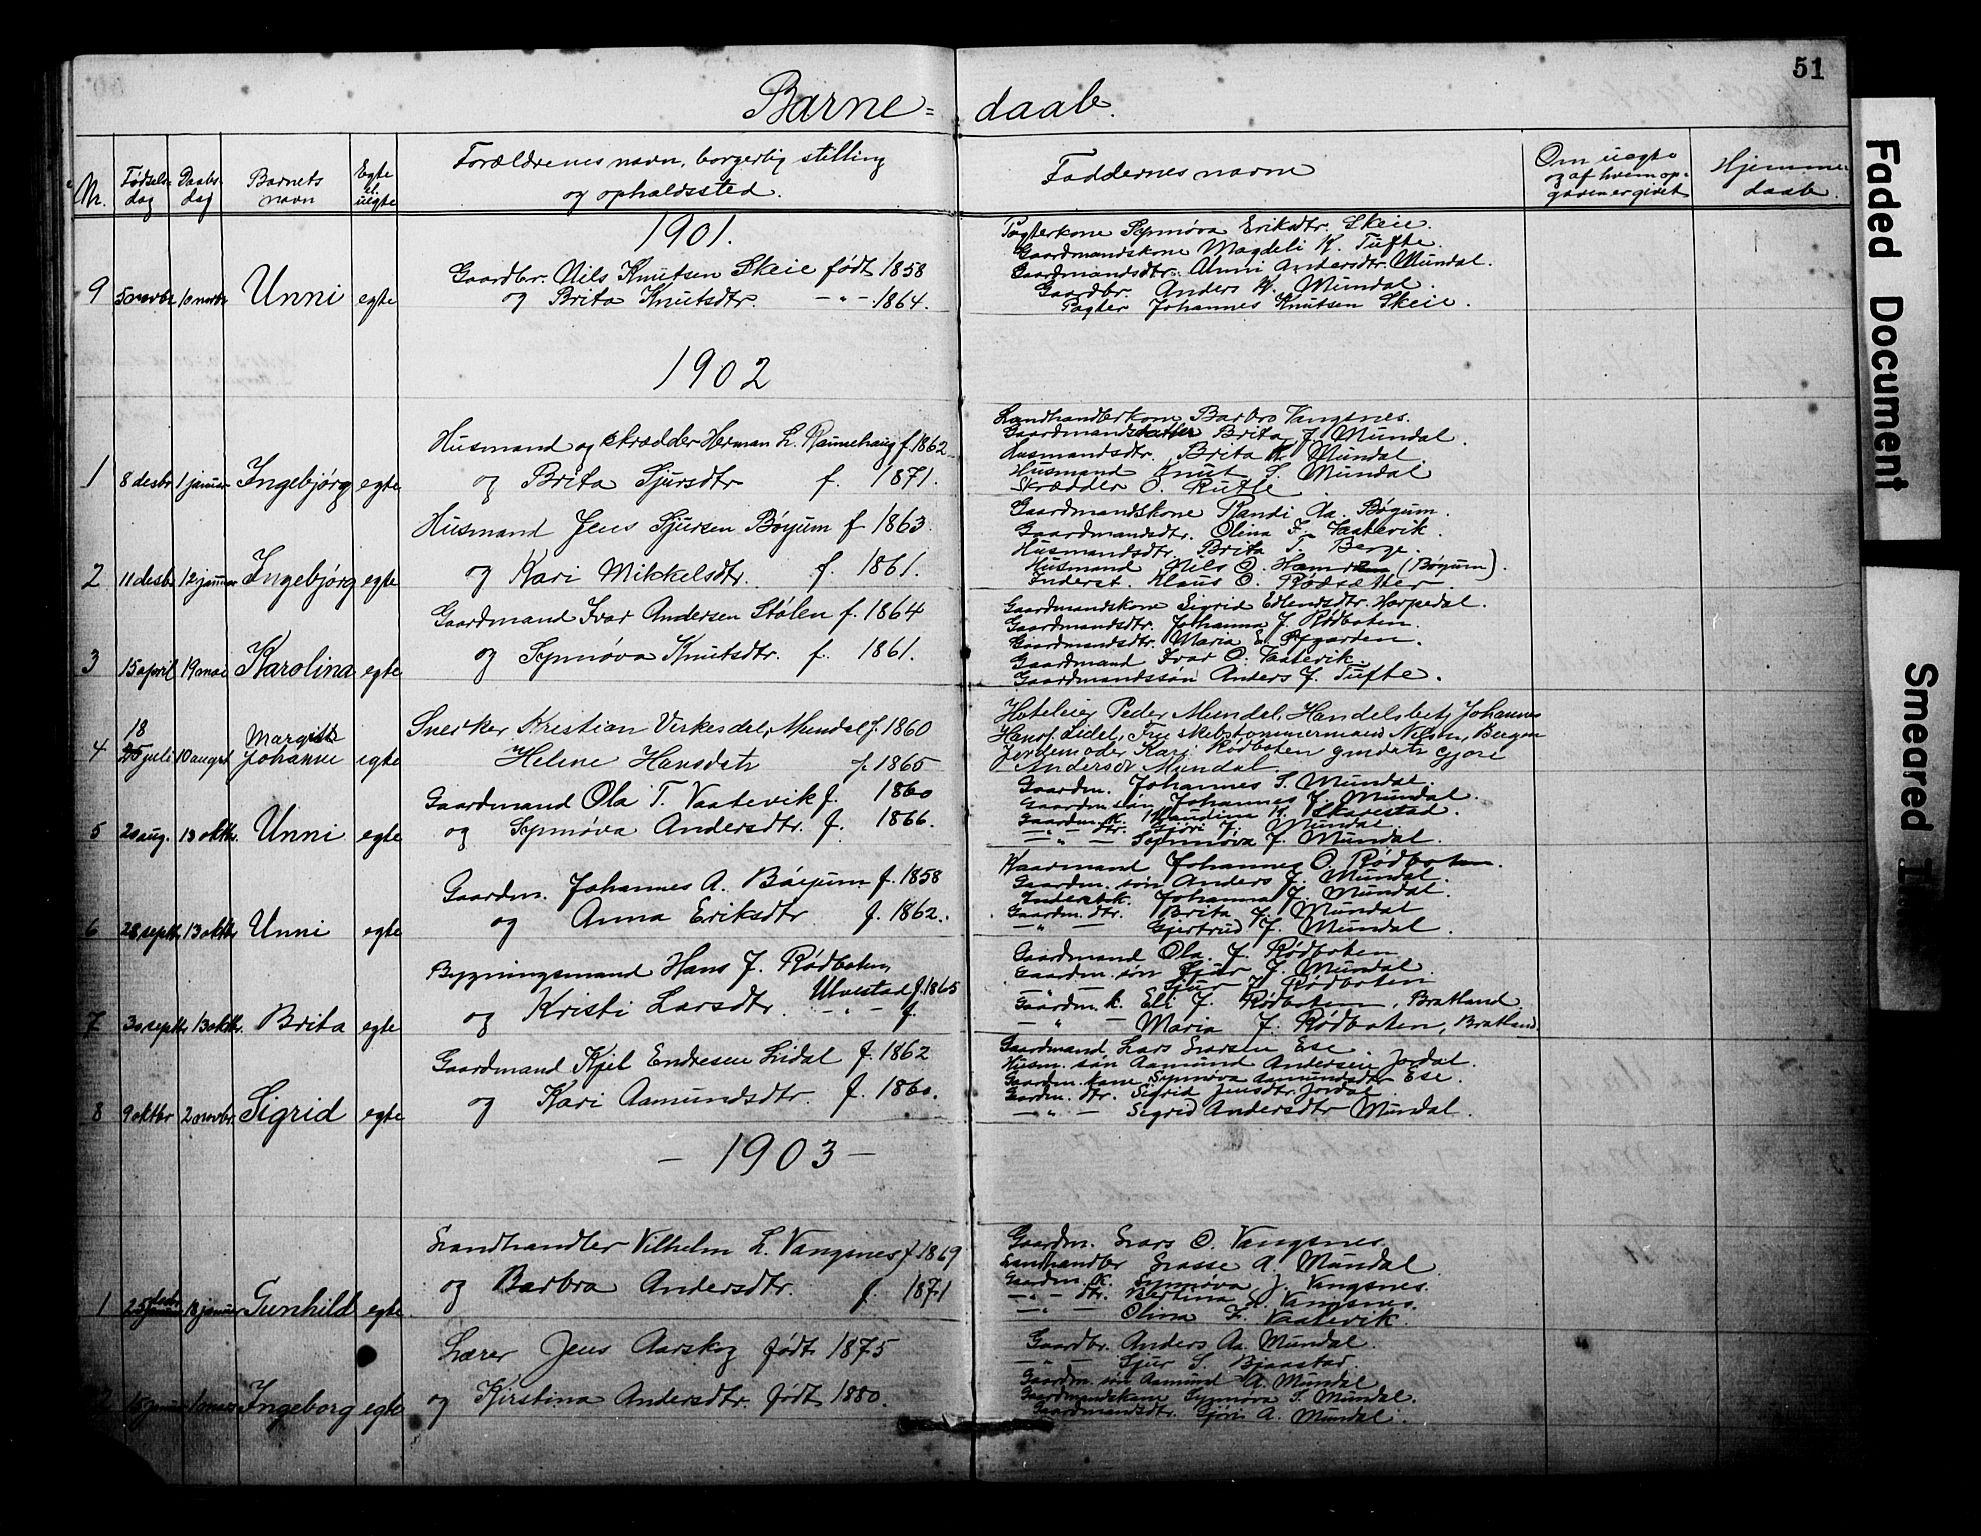 51
Barne= daab.
Nr. Fødsels-dag Daabs-dag Barnets navn Egte el. uegte Forældrenes navn, borgerlig stilling og opholdssted. Faddernes navne Om uegte og af hvem op-gaven er givet Hjemme-daab.
1901.
9 5 novbr 10 novbr Unni egte
Gaardbr. Nils Knutsen Skeie født 1858
og Brita Knutsdtr. — " — 1864.
Pagterkone Synnøva Eriksdtr. Skeie.
Gaardmandskone Magdeli K. Tufte.
Gaardmandsdtr. Unni Andersdtr. Mundal.
Gaardbr. Anders K. Mundal.
Pagter Johannes Knutsen Skeie.
1902
1 8 desbr 1 januar Ingebjørg egte
Husmand og skrædder Herman L. Raunehaug f. 1862
og Brita Sjursdtr f. 1871.
Landhandlerkone Barbro Vangsnes.
Gaardmandsdatter Brita J. Mundal.
Husmandsdtr. Brita K. Mundal.
Husmand Knut S. Mundal
Skrædder O. Rutle
2 11 desbr 12 januar Ingebjørg egte
Husmand Jens Sjursen Bøyum f 1863.
og Kari Mikkelsdtr. f. 1861.
Gaardmandskone Randi Aa. Bøyum.
Gaardmandsdtr. Olina F. Vaatevik.
Husmandsdtr. Brita S. Berge.
Husmand Nils O. (Bøyum).
Inderst. Klaus O. Rødsætter
3 15 april 19 mai Karolina egte
Gaardmand Ivar Andersen Stølen f. 1864
og Synnøva Knutsdtr. f. 1861.
Gaardmandskone Sigrid Erlendsdtr. Horpedal.
Gaardmandsdtr. Johanna J. Rødboten.
Gaardmandsdtr. Maria E. Øygarden.
Gaardmand Ivar O. Vaatevik.
Gaardmandssøn Anders J. Tufte.
4 18 25 juli 10 august Margit Johanne egte
Snedker Kristian Virkesdal, Mundal f. 1860
Heline Hansdatr f. 1865
Hoteleier Peder Mundal, Handelsbetj Johannes
Hans. Lidel, Fru skibstømmermand Nilsen, Bergen
Jordemoder Kari Rødboten gmdsdtr Gjøri
Andersdr Mundal.
5 20 aug. 13 oktbr. Unni egte
Gaardmand Ola T. Vaatevik f. 1860
og Synnøva Andersdtr. f. 1866.
Gaardm. Johannes S. Mundal.
Gaardm. søn Johannes J. Mundal.
Gaardm. k. K. Skarestad.
— " — dtr. Gjøri J. Mundal
— " — Synnøva J. Mundal.
6 28 septbr 13 oktbr Unni egte
Gaardm. Johannes A. Bøyum f. 1858
og Anna Eriksdtr f. 1862.
Gaardmand Johannes O. Rødboten.
Gaardm. søn Anders J. Mundal.
Inderstk. Johanna J. Mundal.
Gaardm. dtr. Brita J. Mundal
— " — Gjertrud J. Mundal.
7 30 septbr 13 oktbr. Brita egte
Bygningsmand Hans J. Rødboten,
Ulvestad f. 1865
og Kristi Larsdtr. — " — f.
Gaardmand Ola J. Rødboten
Gaardm. søn Sjur J. Mundal.
— " — Sjur J. Rødboten
Gaardm. k. Eli J. Rødboten, Bratland
— " — Maria J. Rødboten, Bratland.
8 9 oktbr 2 novbr. Sigrid egte
Gaardmand Kjel Endresen Lidal f. 1862
og Kari Aamundsdtr. f. 1860.
Gaardmand Lars Larsen Ese.
Husm. søn Aamund Andersen Jordal.
Gaardm. kone Synnøva Aamundsdtr Ese.
Gaardm. dtr. Sigrid Jensdtr Jordal.
— " — Sigrid Andersdtr Mundal.
— 1903 —
1 25 desbr 18 januar Gunhild egte
Landhandler Vilhelm L. Vangsnes f 1869
og Barbra Andersdtr. f. 1871
Gaardm. Lars O. Vangsnes.
Landhandlr Lasse A. Mundal
Gaardm. k. Synnøva J. Vangsnes.
— " — dtr. Bertina L. Vangsnes.
— " — Olina F. Vaatevik.
2 15 januar 1 mars Ingeborg egte
Lærer Jens Aarskog født 1875
og Kirstina Andersdtr. født 1880.
Gaardbr. Anders Aa. Mundal.
— " — Sjur S. Bjaastad.
Gaardm. søn Aamund A. Mundal
Gaardmandskone Synnøva S. Mundal.
Gaardmandsdtr. Gjøri A. Mundal.
Faded Document
Smeared